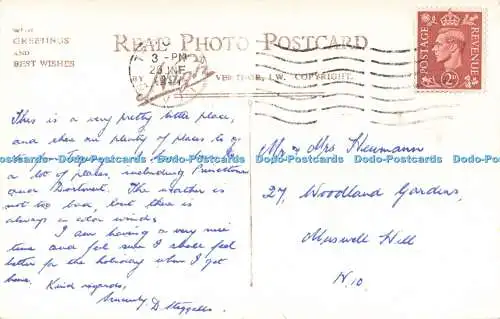 WITH
GREETINGS
AND
BEST WISHES
REAL PHOTO POSTCARD
3 - PM
BY Nigh VENTNOR, I.W. COPYRIGHT.
POSTAGE REVENUE
2D
This is a very pretty little place,
and there are plenty of places to go
Dodo-Postcards Dodo-Postcards Dodo-Postcards Dodo-Postcards Dodo-Postcards Dodo-Postcards
a lot of places, including Princetown
near Dartmoor. The weather is
not too bad, but there is
always a cold wind.
I am having a very nice
time and feel sure I shall feel
better for the holiday when I get
home. Kind regards,
Sincerely,
Mr & Mrs Heumann
27, Woodland Gardens,
Muswell Hill
N.10